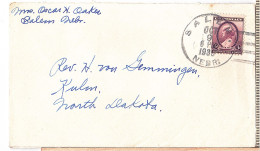 Mrs. Oscar H. Oakes
Salem Nebr.
SALEM
OCT
9
193
NEBR
Rev. H. von Gemmingen,
Kulm,
North Dakota.